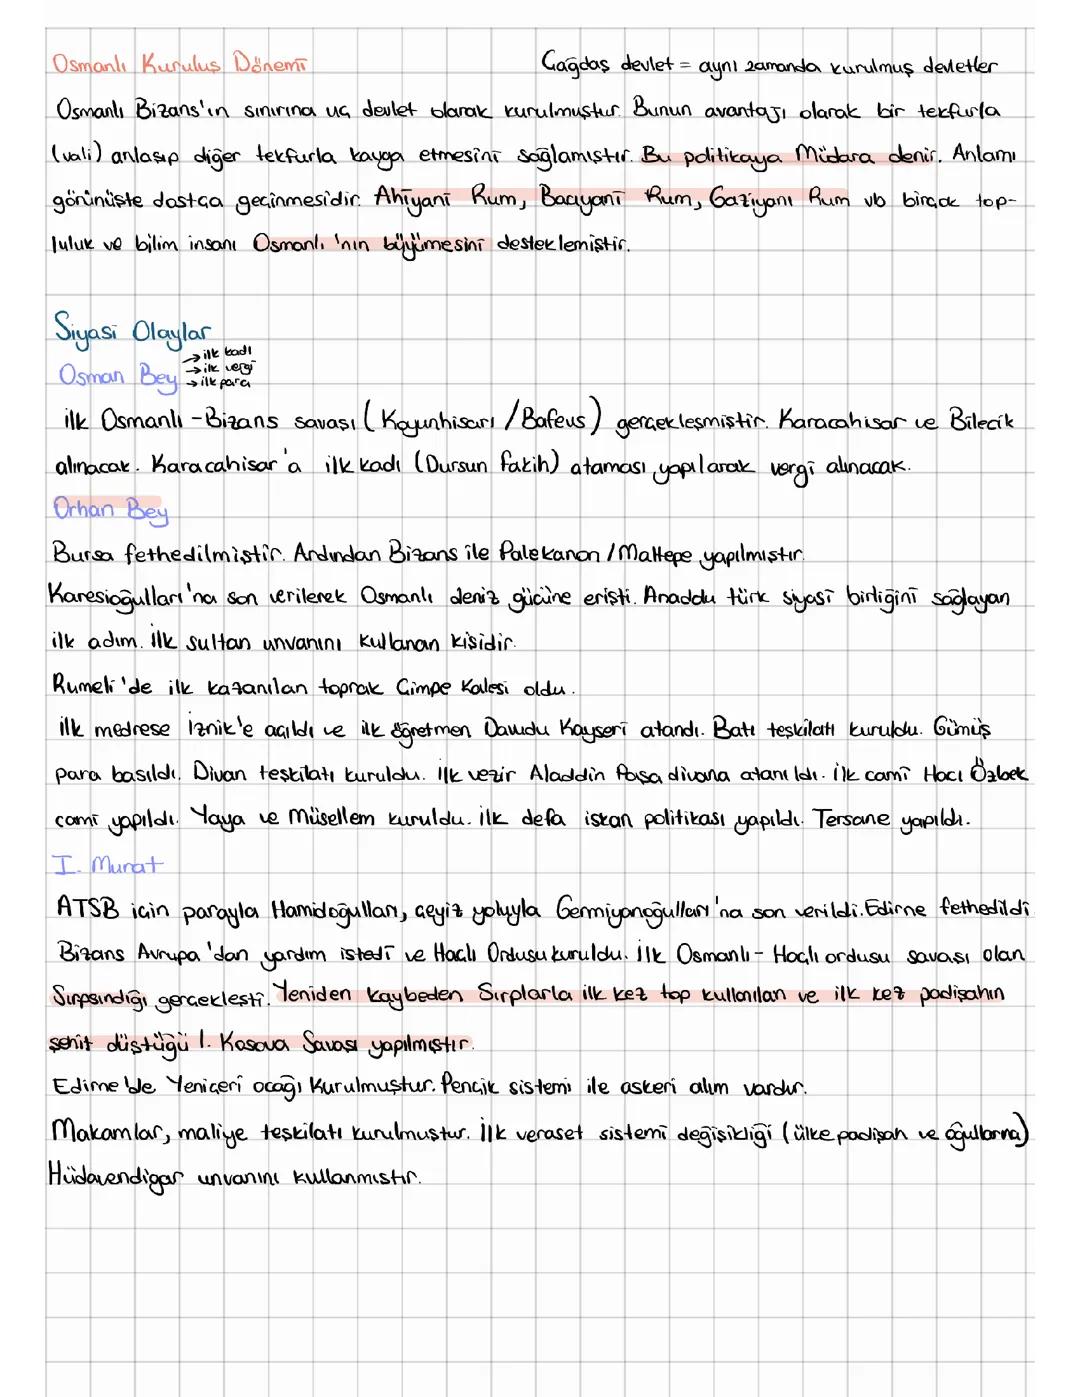 Osmanlı Kuruluş Dönemi
Çağdaş devlet = aynı zamanda kurulmuş devletler
Osmanlı Bizans'ın sınırına uç devlet olarak kurulmuştur. Bunun avantajı olarak bir tekfurla
(vali) anlaşıp diğer tekfurla kavga etmesini sağlamıştır. Bu politikaya Müdara denir. Anlamı
görünüşte dostça geçinmesidir. Ahiyani Rum, Bacıyani Rum, Gaziyanı Rum vb birçok top-
luluk ve bilim insanı Osmanlı'nın büyümesini desteklemiştir.
Siyasi Olaylar
Osman Bey
→ ilk kadı
→ ilk vergi
→ ilk para
ilk Osmanlı-Bizans savaşı (Koyunhisarı/Bafeus) gerçekleşmiştir. Karacahisar ve Bilecik
alınacak. Karacahisar'a ilk kadı (Dursun fakih) ataması yapılarak vergi alınacak.
Orhan Bey
Bursa fethedilmiştir. Ardından Bizans ile Palekanon/Maltepe yapılmıştır.
Karesioğulları'na son verilerek Osmanlı deniz gücüne erişti. Anaddu türk siyasi birliğini sağlayan
ilk adım. İlk sultan unvanını kullanan kişidir.
Rumeli'de ilk kazanılan toprak Çimpe Kalesi oldu.
ilk medrese İznik'e açıldı ve ilk öğretmen Davudu Kayseri atandı. Batı teşkilatı kuruldu. Gümüş
para basıldı. Divan teşkilatı kuruldu. İlk vezir Aladdin Paşa divana atanıldı. İlk cami Hacı Özbek
cami yapıldı. Yaya ve Müsellem kuruldu. ilk defa iskan politikası yapıldı. Tersane yapıldı.
I. Murat
ATSB için parayla Hamidoğulları, çeyiz yoluyla Germiyanoğulları'na son verildi. Edirne fethedildi
Bizans Avrupa'dan yardım istedi ve Haçlı Ordusu kuruldu. İlk Osmanlı-Haçlı ordusu savaşı olan
Sırpsındığı gerçekleşti. Yeniden kaybeden Sırplarla ilk kez top kullanılan ve ilk kez padişahın
şehit düştüğü I. Kosova Savaşı yapılmıştır.
Edirne'de Yeniçeri ocağı Kurulmuştur. Pençik sistemi ile askeri alım vardır.
Makamlar, maliye teşkilatı kurulmuştur. İlk veraset sistemi değişikliği (ülke padişah ve oğullarına)
Hüdavendigar unvanını kullanmıştır.